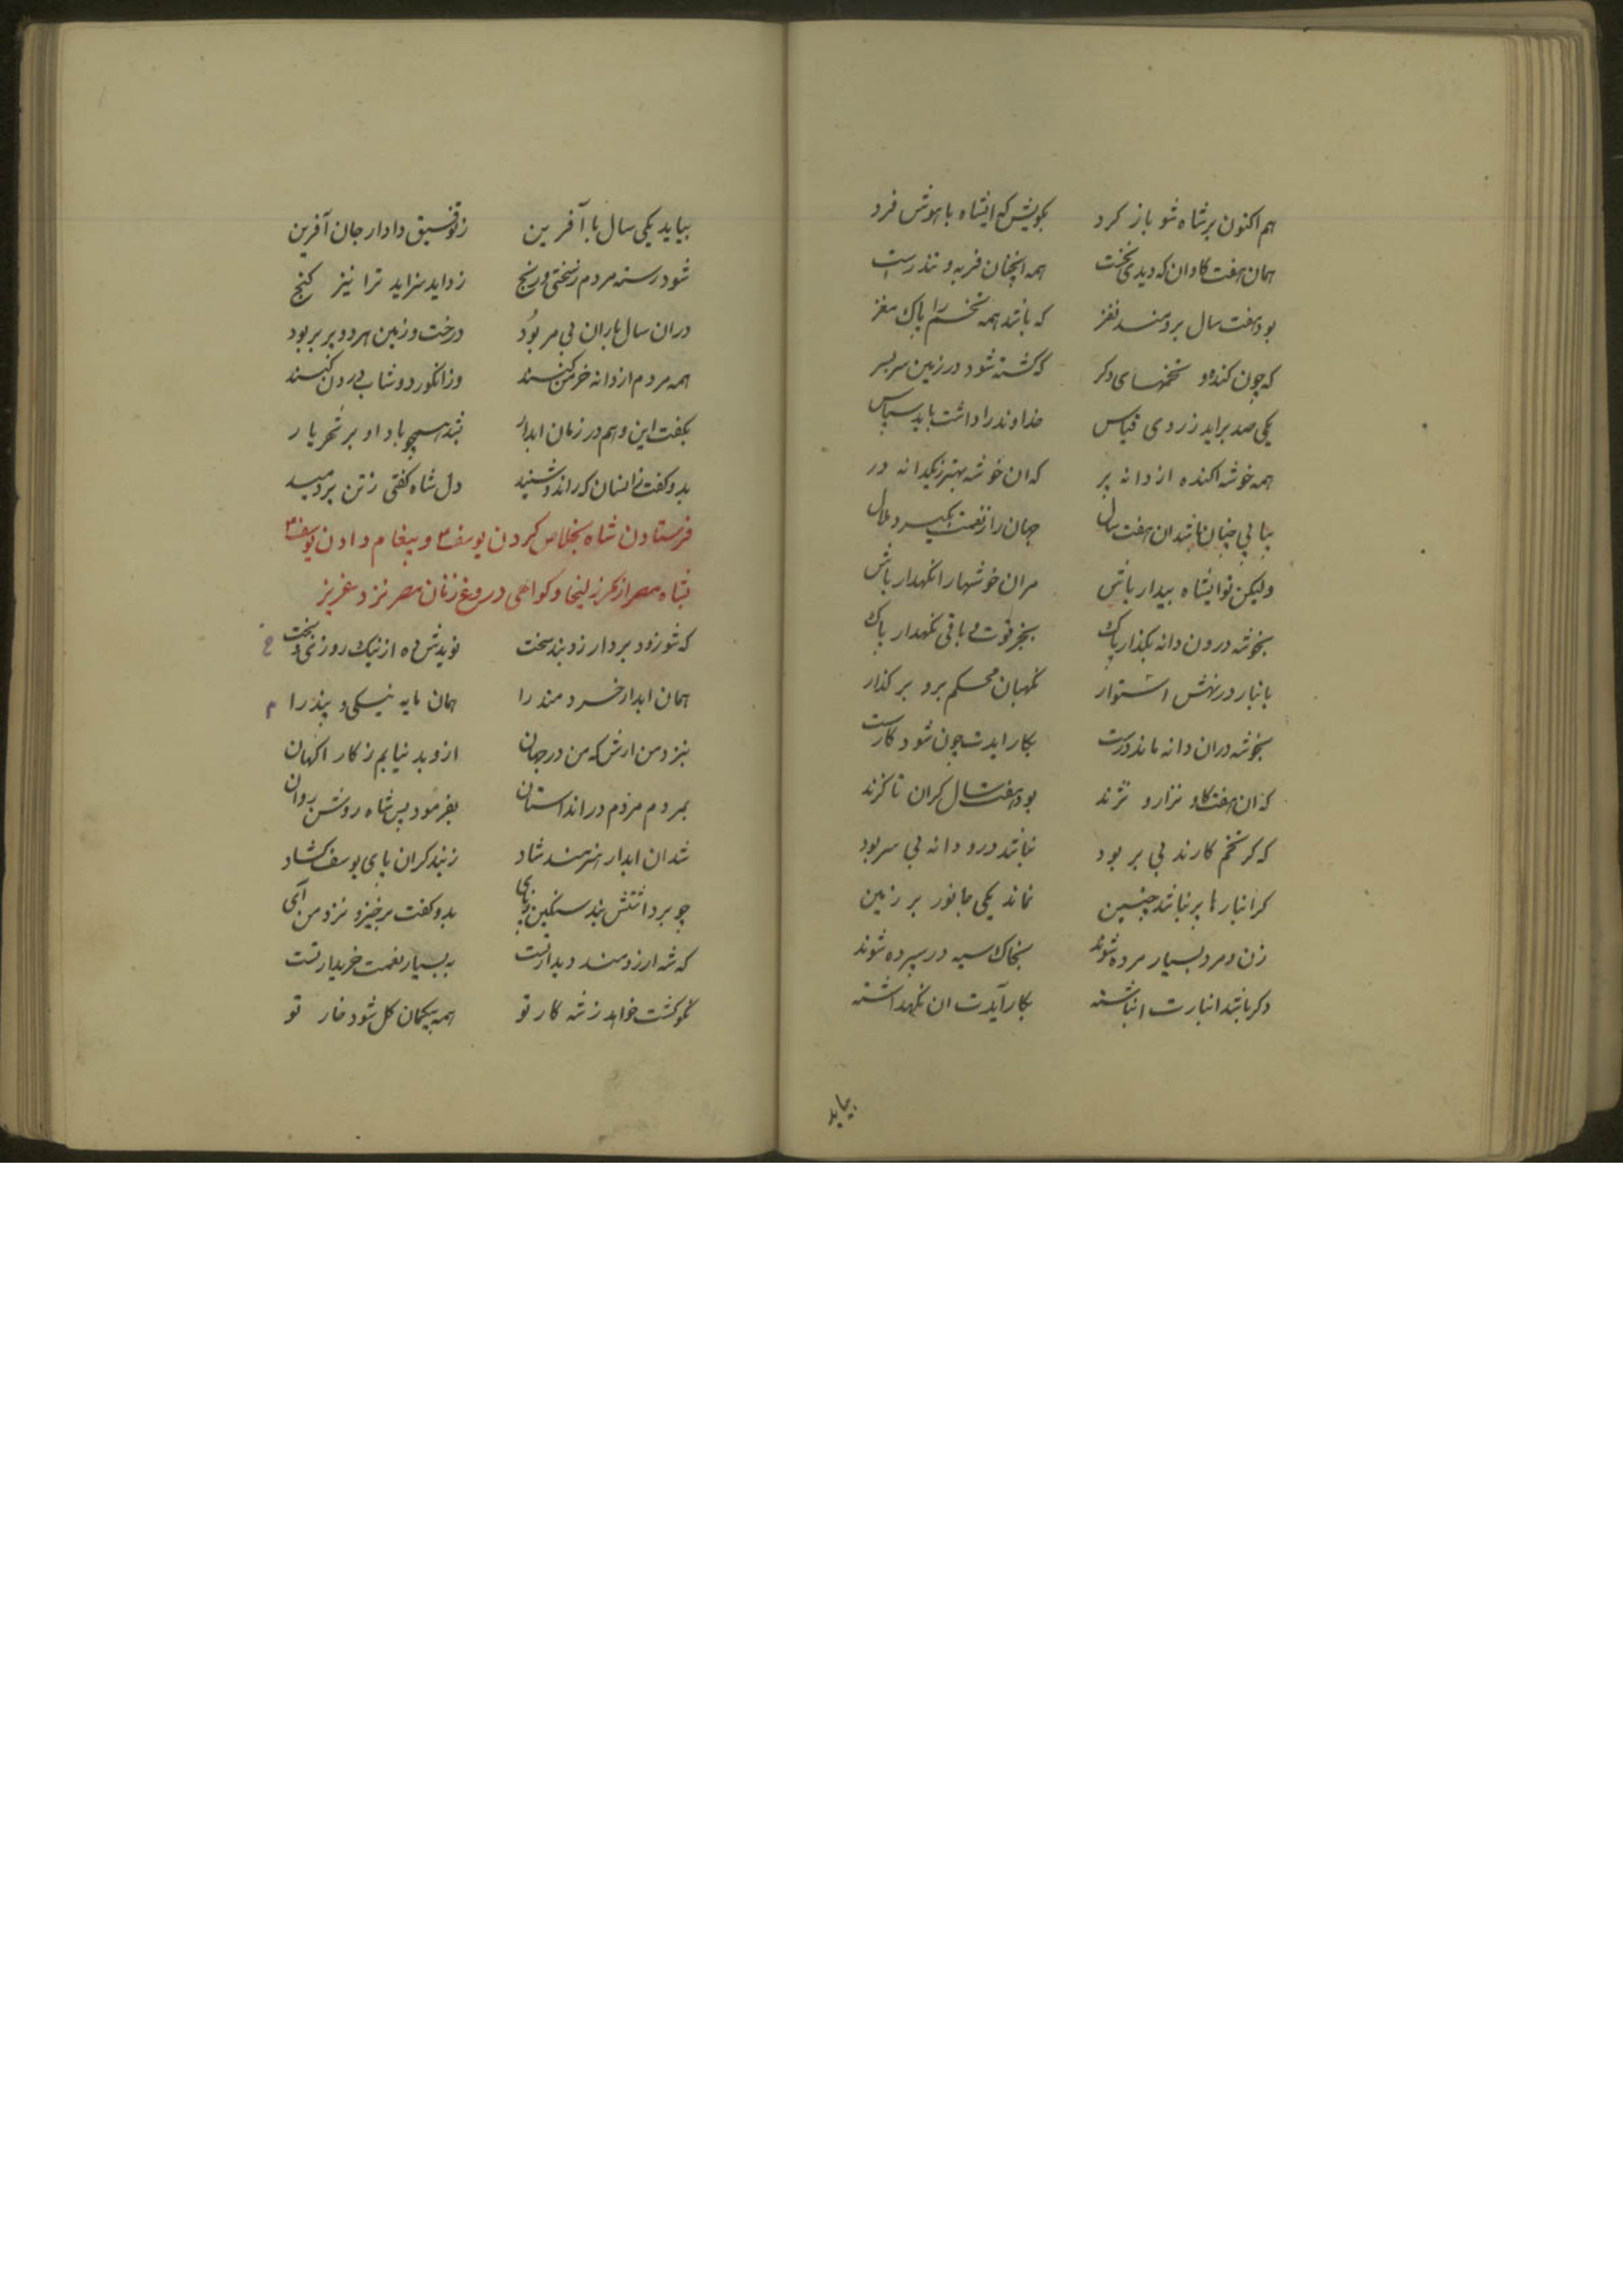 هم اکنون بر شاه شو باز کرد بکویش که ایشاه با هوش فرد
همان هفت کاوان که دیدی نخست همه انچنان فربه و تندرست
بود هفت سال برومند نغز که باشد همه تخم را پاک مغز
که چون کندو و تخمهای دکر که کشته شود در زمین سربسر
یکی صد براید ز روی قیاس خداوند را داشت باید سپاس
همه خوشه اکنده از دانه پر که ان خوشه بهتر ز یکدانه در
پیاپی چنان باشد ان هفت سال جهان را ز نعمت بکیرد ملال
ولیکن تو ایشاه بیدار باش مران خوشها را نکهدار باش
بخوشه درون دانه بکذار پاک بخر قوت و باقی نکهدار پاک
بانبار در نهش استوار نکهبان محکم برو بر کذار
بخوشه دران دانه ماند درست بکار ایدت چون شود کار سست
که ان هفت کاو نزار و نژند بود هفت سال کران تا کزند
که کر تخم کارند بی بر بود نباشد درو دانه بی سر بود
کر انبارها پر نباشد چنین نماند یکی جانور بر زمین
زن و مرد بسیار مرده شوند بخاک سیه در سپرده شوند
دکر باشد انبارت انباشته بکار آیدت ان نکهداشته
بیاید
بیاید یکی سال با آفرین ز توفیق دادار جان آفرین
شود رسته مردم ز سختی و رنج زداید نزاید ترا نیز کنج
دران سال باران بی مر بود درخت و زمین هر دو پر بر بود
همه مردم از دانه خرمن کنند وز انکور دوشاب در دن کنند
بکفت این و هم در زمان ابدار بشد همچو باد او بر شهریار
بدو کفت زانسان که راند و شنید دل شاه کفتی ز تن بر دمید
فرستادن شاه بخلاص کردن یوسف ۳ و پیغام دادن یوسف ۳
بشاه مصر از مکر زلیخا و کواهی دروغ زنان مصر نزد عزیز
که شو زود بردار زو بند سخت نویدش ده از نیک روزی و بخت خ
همان ابدار خردمند را همان مایه نیکی و پند را م
بنزد من ارش که من در جهان ازو بد نیابم ز کار اکهان
بمردم مردم در انداستان بفرمود پس شاه روشن روان
شد ان ابدار هنرمند شاد ز بند کران پای یوسف کشاد
چو برداشتش بند سنکین ز پای بدو کفت برخیز و نزد من آی
که شه ارزومند دیدار تست به بسیار نعمت خریدار تست
نکو کشت خواهد ز شه کار تو همه بیکمان کل شود خار تو